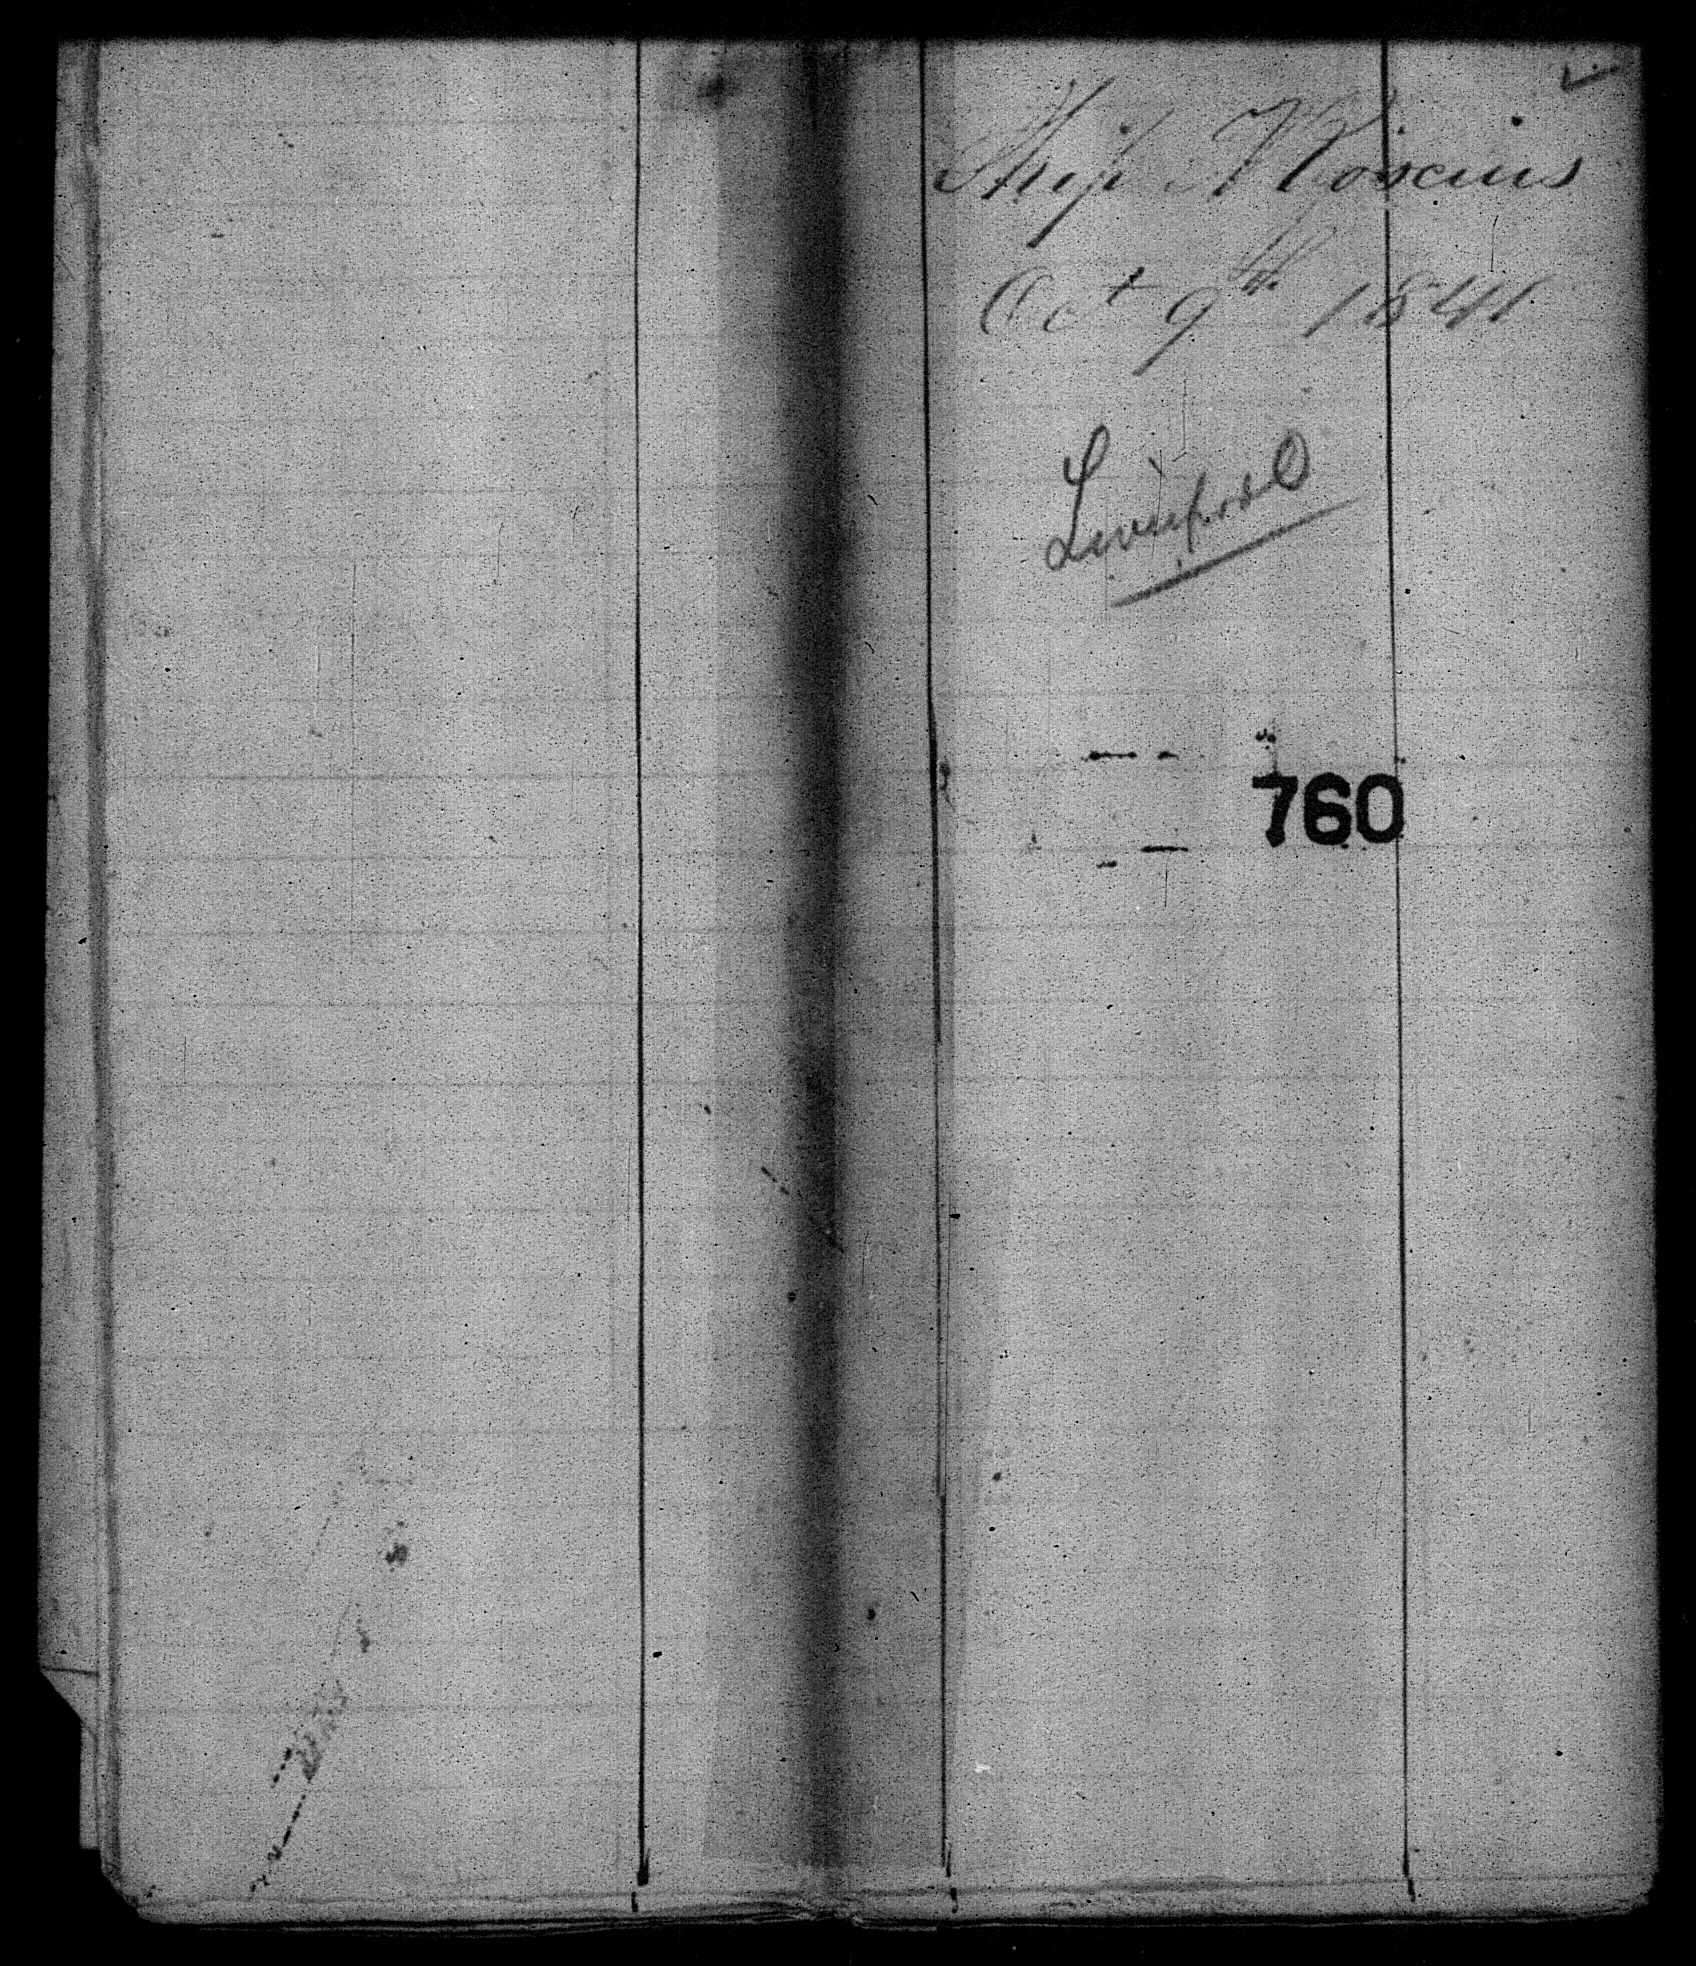 Ship Roscius
Oct 9th 1841
Liverpool
760